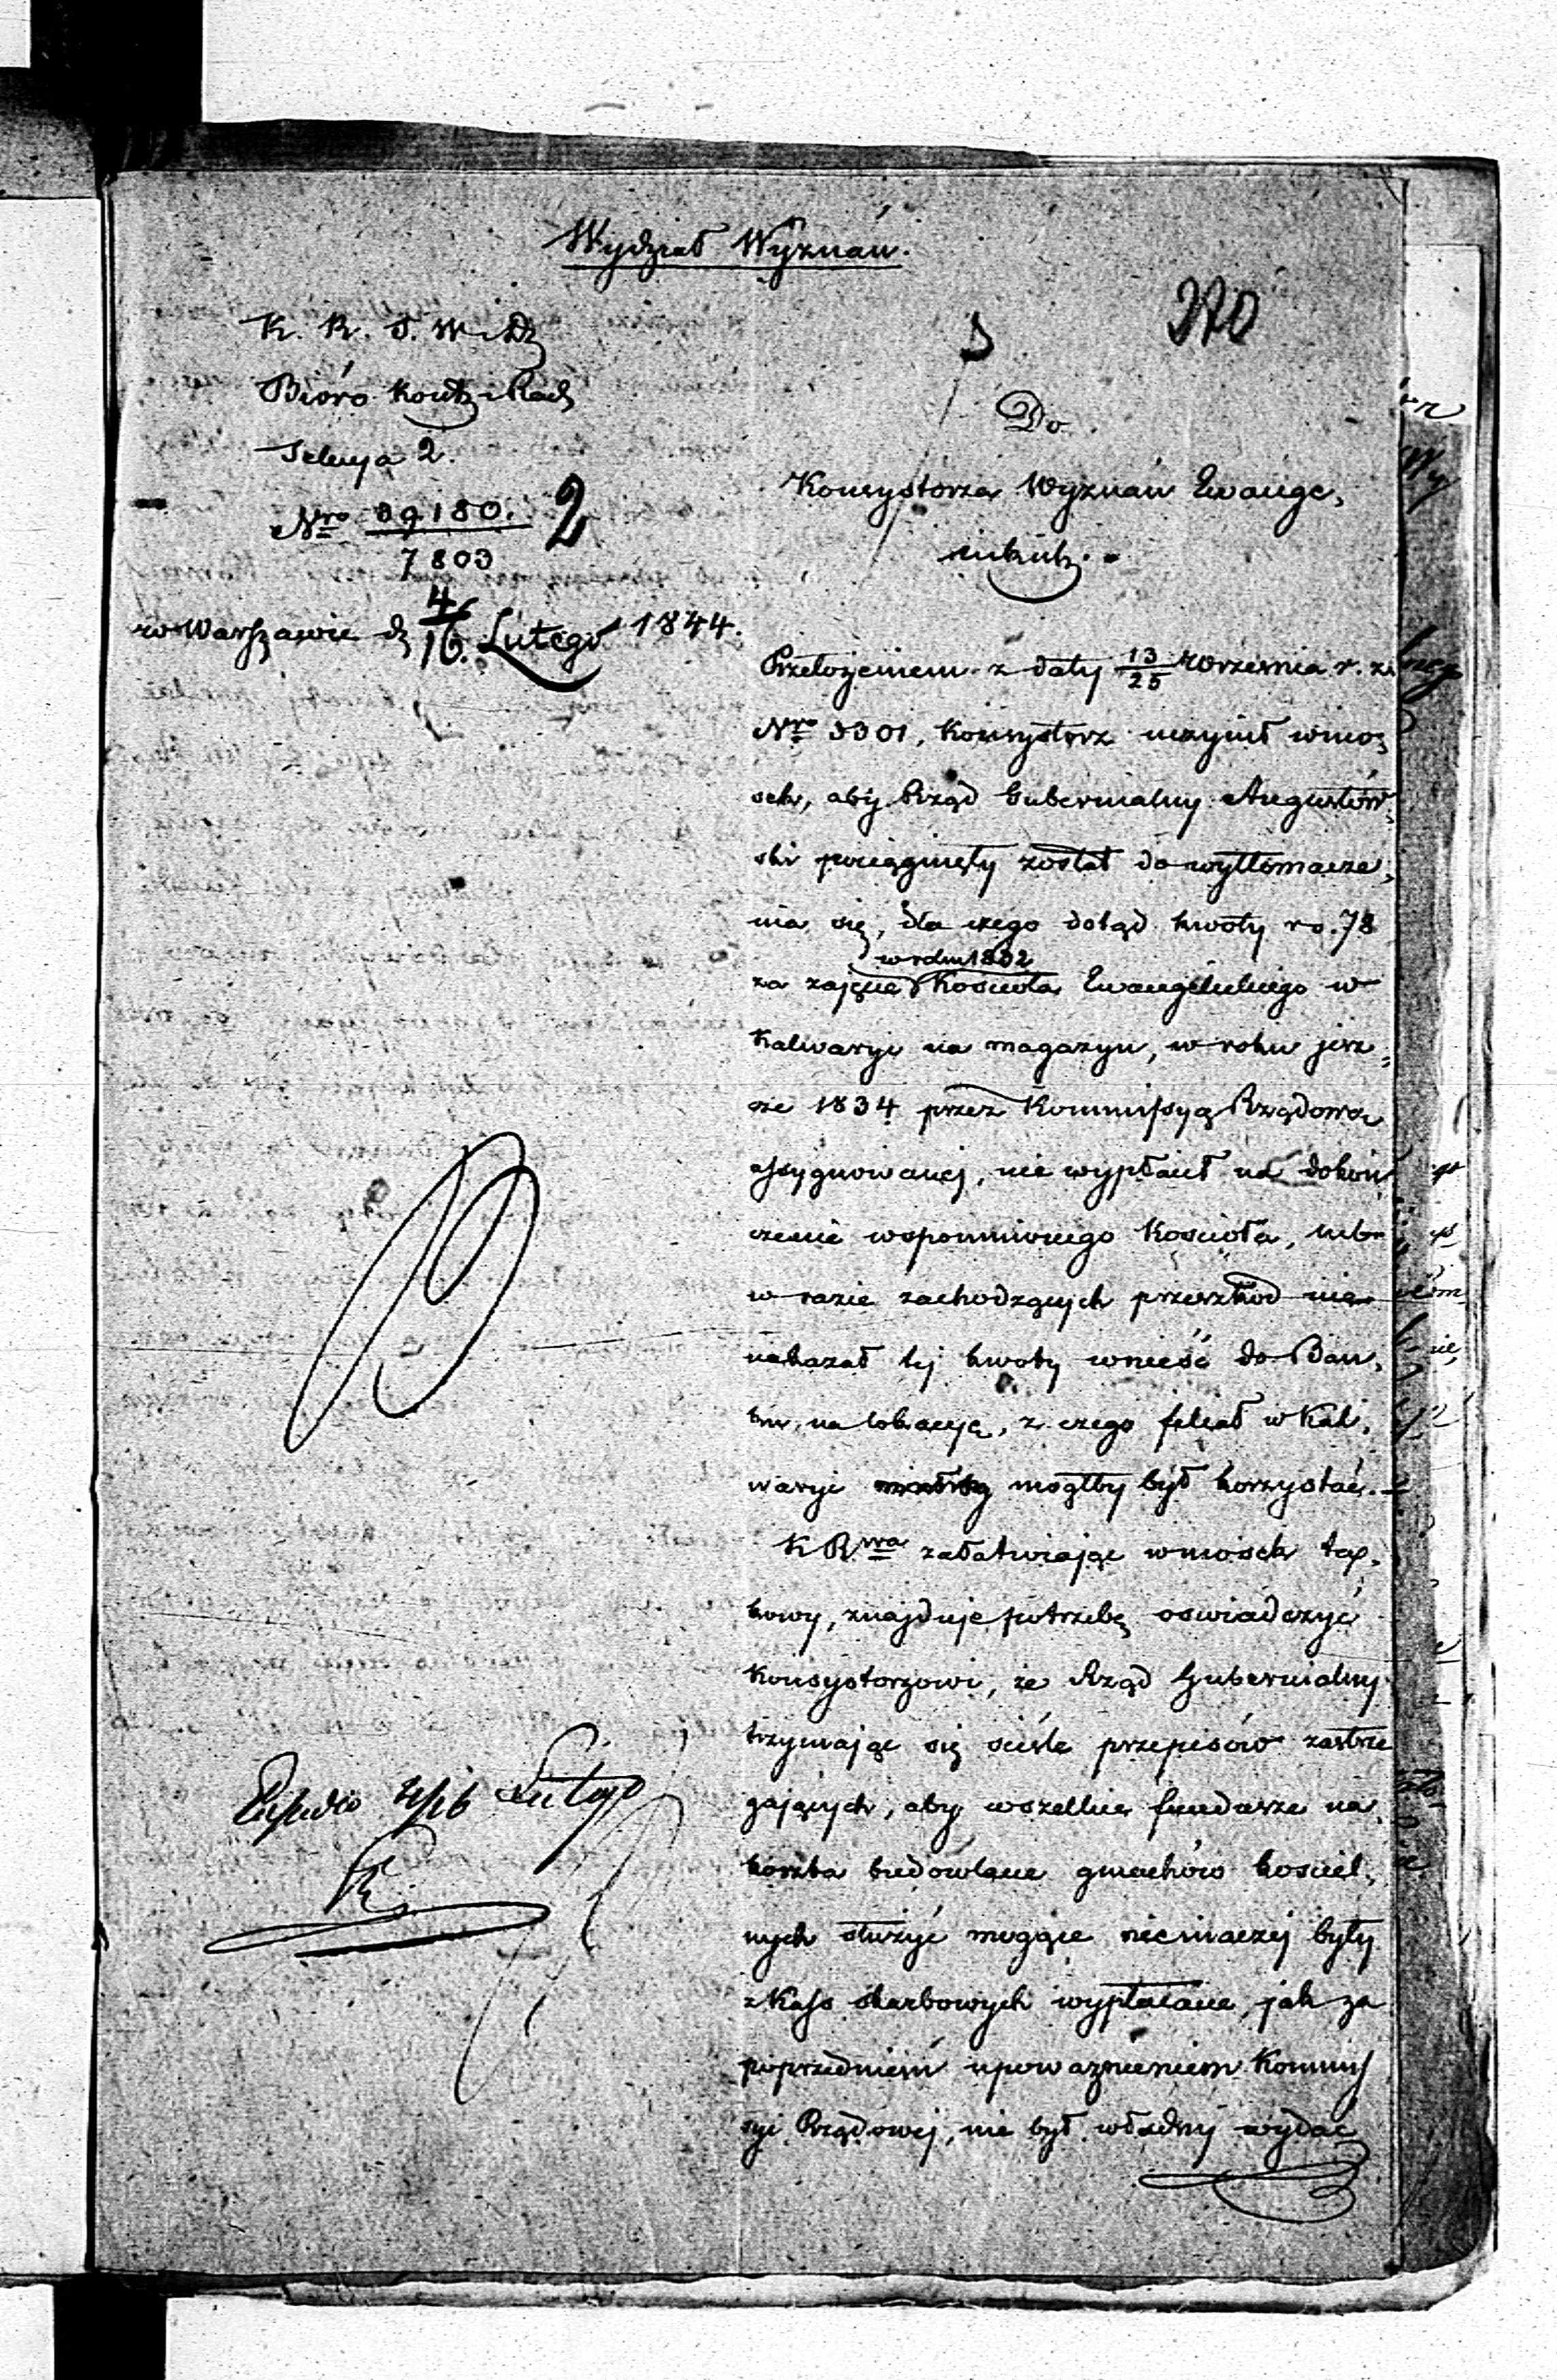 Wydział Wyznań.
K. R. S. W. i D.
Bióro Kontr. i Rach.
Sekcya 2.
Nro 39180. 2
7803
w Warszawie d. 4/16 Lutego 1844.
Do
Konsystorza Wyznań Ewange,
lickich.
Przełożeniem z daty 13/25 Września r. z.
Nro 3301, Konsystorz uczynił wnio,
sek, aby Rząd Gubernialny Augustow,
ski pociągnięty został do wytłomacze,
nia się, dla czego dotąd kwoty rs. 78
w roku 1832
za zajęcie Kościoła Ewangelickiego w
Kalwaryi na magazyn, w roku jesz,
cze 1834 przez Kommissyą Rządową
assygnowanej, nie wypłacił na dokoń
czenie wspomnionego Kościoła, lub
w razie zachodzących przeszkod nie
nakazał tej kwoty wnieść do Ban,
ku, na lokacyę, z czego filiał w Kal,
waryi mógłby był korzystać.
K Rwa załatwiając wniosek ta,
kowy, znajduje potrzebę oswiadczyć
Konsystorzowi, że Rząd Gubernialny
trzymając się sciśle przepisów zastrze
gających, aby wszelkie fundusze na
koszta budowlane gmachów kosciel,
nych służyć mogące nieinaczej były
z Kass skarbowych wypłacane, jak za
poprzedniem upoważnieniem Kommis
syi Rządowej, nie był władny wydać
4/16 Lutego